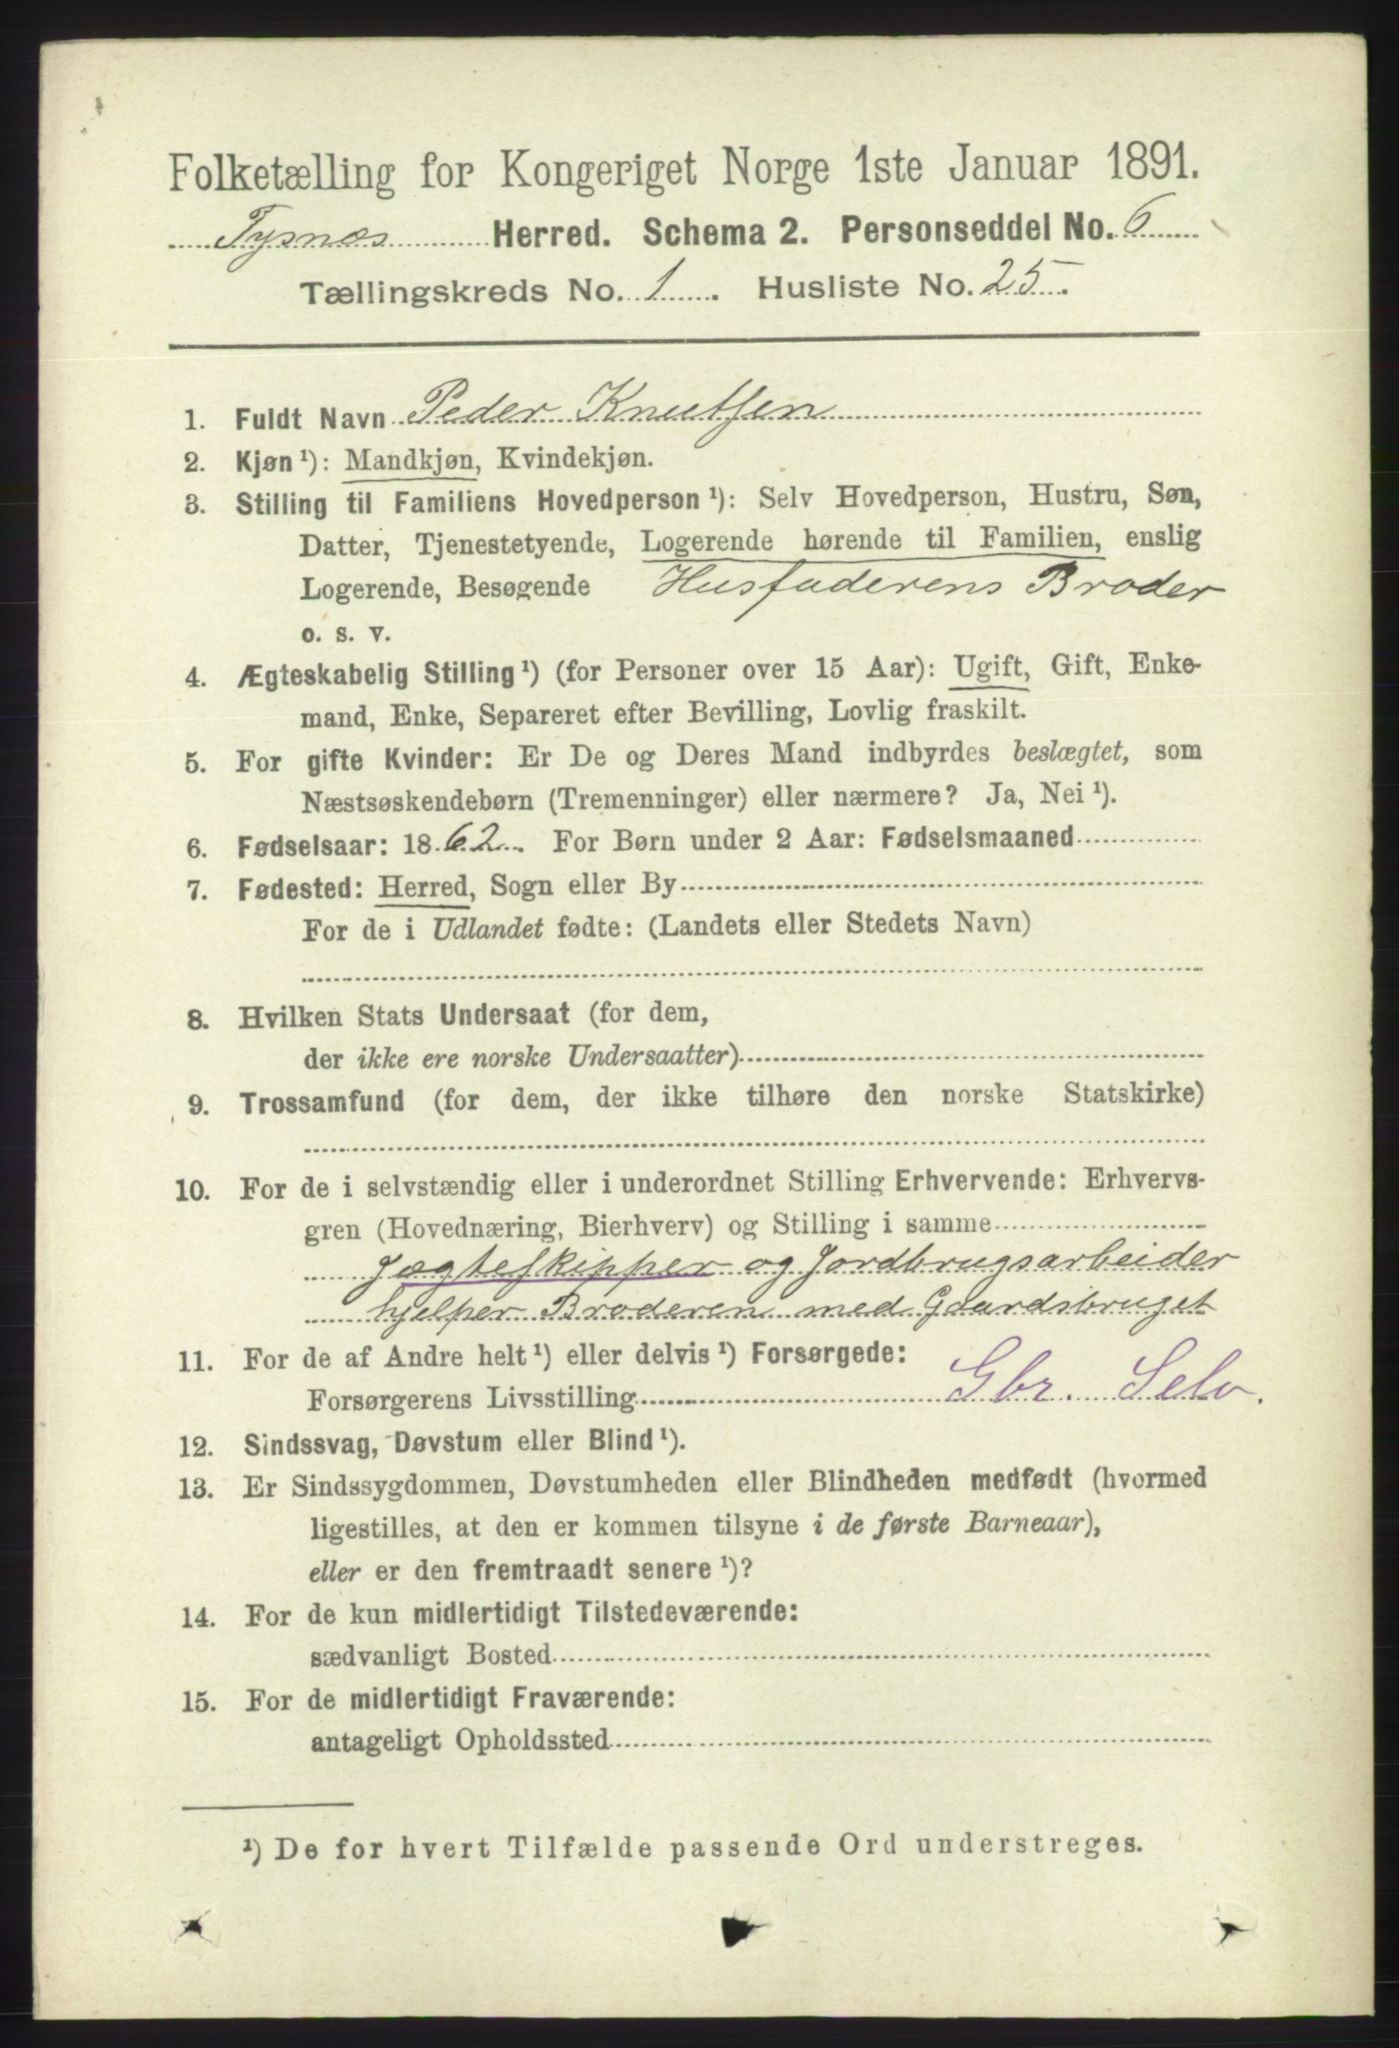 Folketælling for Kongeriget Norge 1ste Januar 1891.
Tysnæs Herred. Schema 2. Personseddel No. 6
Tællingskreds No. 1. Husliste No. 25.
1. Fuldt Navn Peder Knutsen
2. Kjøn ¹): Mandkjøn, Kvindekjøn.
3. Stilling til Familiens Hovedperson ¹): Selv Hovedperson, Hustru, Søn,
Datter, Tjenestetyende, Logerende hørende til Familien, enslig
Logerende, Besøgende Husfaderens Broder
o. s. v.
4. Ægteskabelig Stilling ¹) (for Personer over 15 Aar): Ugift, Gift, Enke-
mand, Enke, Separeret efter Bevilling, Lovlig fraskilt.
5. For gifte Kvinder: Er De og Deres Mand indbyrdes beslægtet, som
Næstsøskendebørn (Tremenninger) eller nærmere? Ja, Nei ¹).
6. Fødselsaar: 1862. For Børn under 2 Aar: Fødselsmaaned
7. Fødested: Herred, Sogn eller By
For de i Udlandet fødte: (Landets eller Stedets Navn)
8. Hvilken Stats Undersaat (for dem,
der ikke ere norske Undersaatter)
9. Trossamfund (for dem, der ikke tilhøre den norske Statskirke)
10. For de i selvstændig eller i underordnet Stilling Erhvervende: Erhvervs-
gren (Hovednæring, Bierhverv) og Stilling i samme
Jægteskipper og Jordbrugsarbeider
hjelper Broderen med Gaardsbruget
11. For de af Andre helt ¹) eller delvis ¹) Forsørgede:
Forsørgerens Livsstilling Gbr. Selv.
12. Sindssvag, Døvstum eller Blind ¹).
13. Er Sindssygdommen, Døvstumheden eller Blindheden medfødt (hvormed
ligestilles, at den er kommen tilsyne i de første Barneaar),
eller er den fremtraadt senere ¹)?
14. For de kun midlertidigt Tilstedeværende:
sædvanligt Bosted
15. For de midlertidigt Fraværende:
antageligt Opholdssted
¹) De for hvert Tilfælde passende Ord understreges.